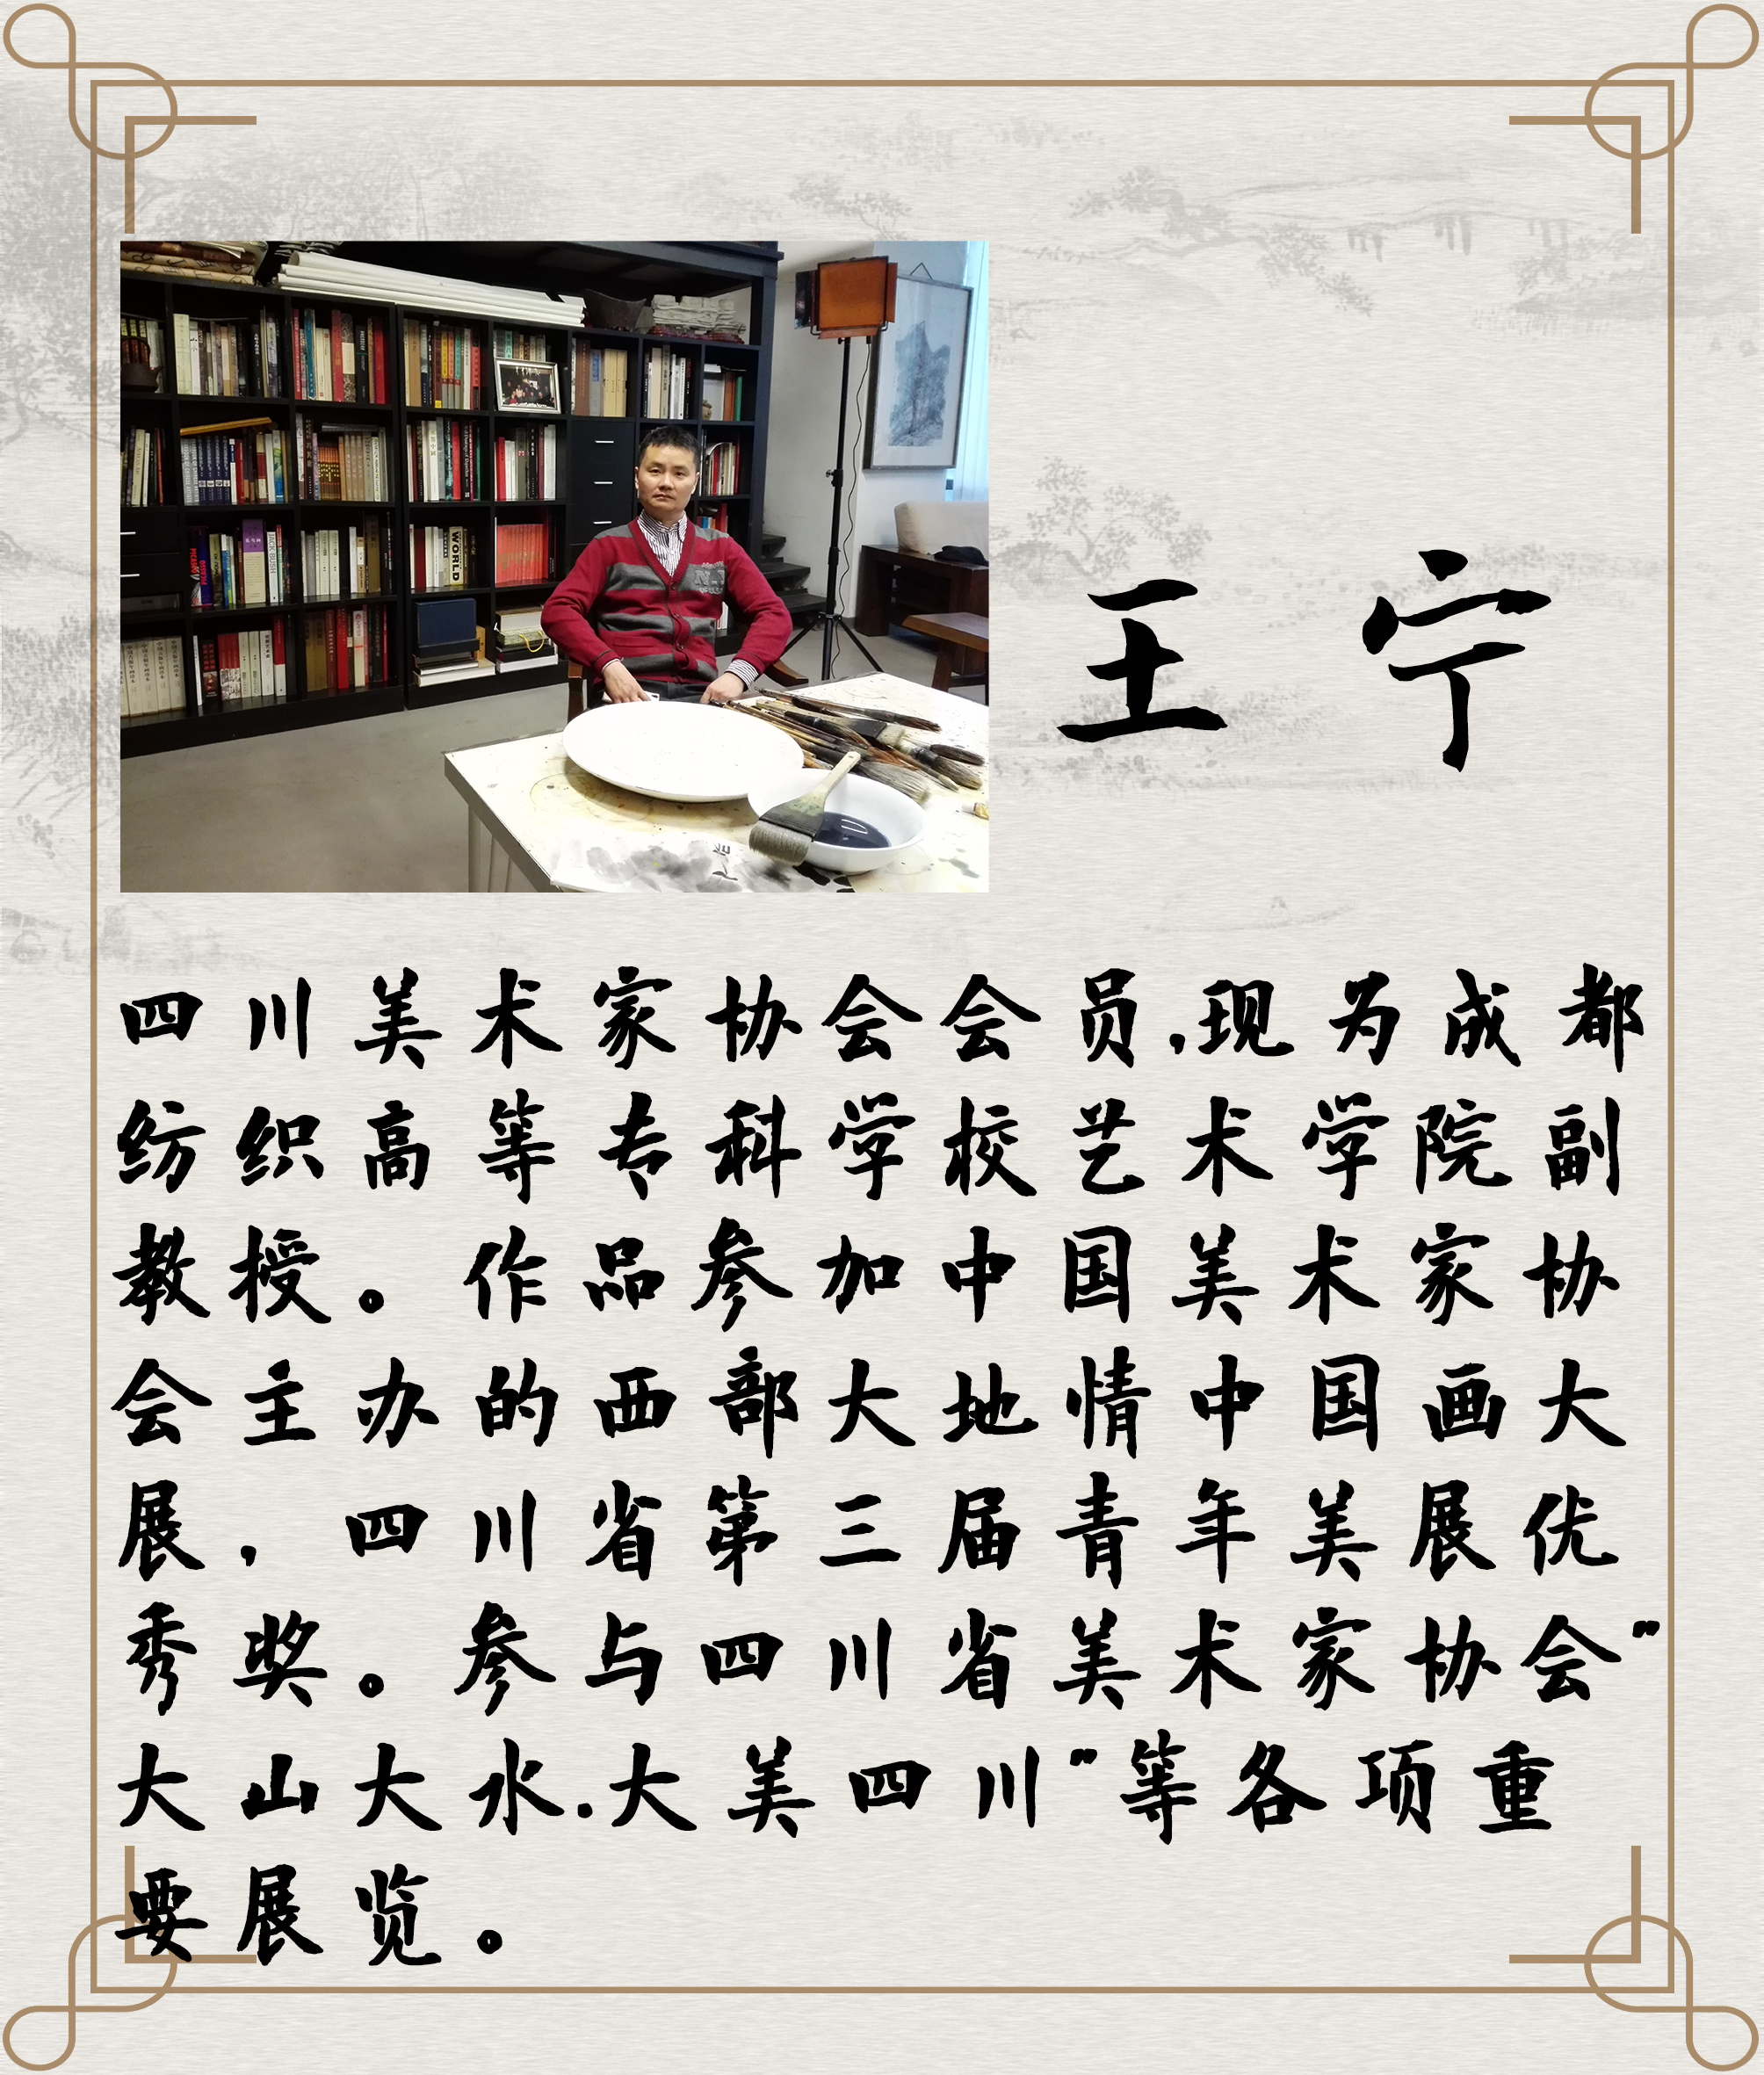 王宁
四川美术家协会会员,现为成都
纺织高等专科学校艺术学院副
教授。作品参加中国美术家协
会主办的西部大地情中国画大
展,四川省第三届青年美展优
秀奖。参与四川省美术家协会"
大山大水.大美四川"等各项重
要展览。
WORLD